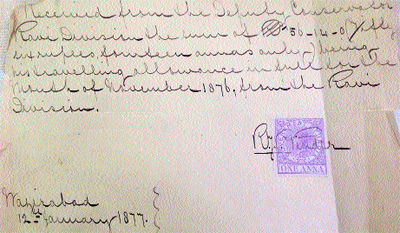 Received from the Deputy Conservator
Ravi Division the sum of (fifty
six rupees, fourteen annas only) being
his travelling allowance in full for the
Month of November 1876, from the Ravi
Division.
ONE ANNA
Wazirabad
12th January 1877.